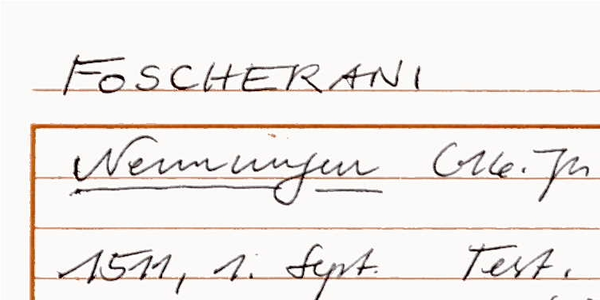 FOSCHERANI
Nennungen
1511, 1. Sept. Test.